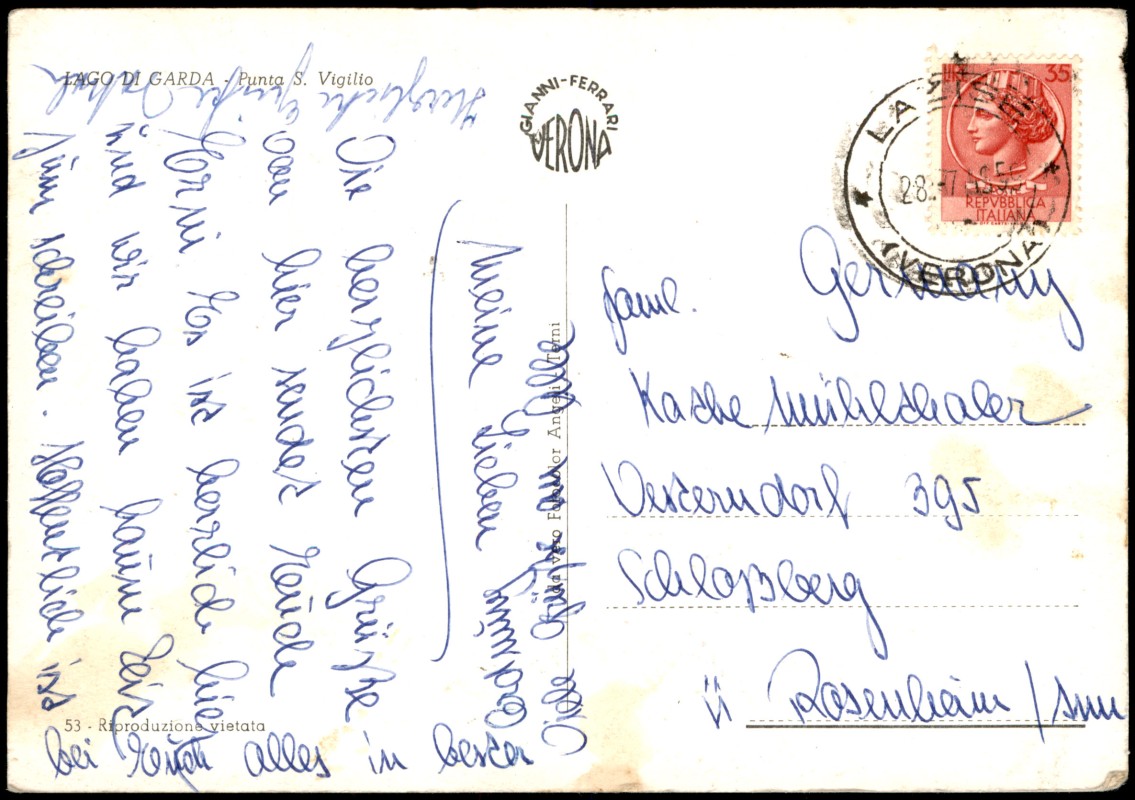 LAGO DI GARDA - Punta S. Vigilio
GIANNI-FERRARI
VERONA
LIRE 35
REPVBBLICA
ITALIANA
28.-7
(VERONA)
Meine Lieben
Die herzlichsten Grüße
von hier sendet Euch
Erni. Es ist herrlich hier
und wir haben kaum Zeit
zum schreiben. Hoffentlich ist
bei Euch alles in bester
Ordnung.
Viele Grüße an alle
Herzliche Grüße
Vera Fotocolor Angeli - Terni
Germany
Faml.
Kathe Mühlthaler
Westerndorf 395
Schloßberg
ü Rosenheim/Inn
53 - Riproduzione vietata